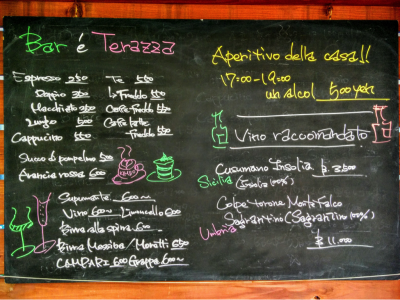 Bar é Terazza
Espresso 250 Te 550
Doppio 350 Freddo 550
Macchiato 350 Caffe Freddo 550
Lungo 500 Caffe latte
Cappuccino 550 Freddo 550
Succo di pompelmo 500
Arancia rossa 600
Spumante 600~
Vino 600~ Limoncello 600
Birra alla spina 600
Birra Messina / Moretti 650
CAMPARI 600 Grappa 600~
Aperitivo della casa!!
17:00-19:00
un alcol 500yen
Vino raccomandato
Cusumano Insolia ¥ 3,500
Sicilia (Insolia 100%)
Colpetrone Montefalco
Sagrantino (Sagrantino 100%)
Umbria
¥ 11,000